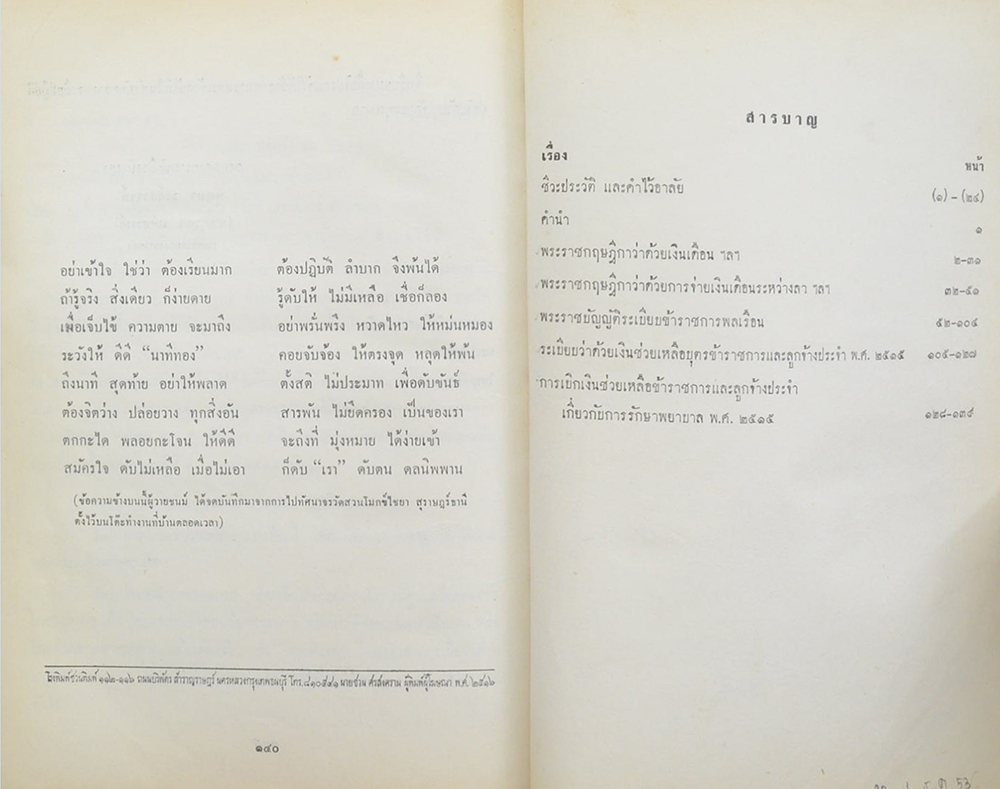 อย่าเข้าใจ ใช่ว่า ต้องเรียนมาก ต้องปฏิบัติ ลำบาก จึงพ้นได้
ถ้ารู้จริง สิ่งเดียว ก็ง่ายดาย รู้ดับให้ ไม่มีเหลือ เชื่อก็ลอง
เมื่อเจ็บไข้ ความตาย จะมาถึง อย่าพรั่นพรึง หวาดไหว ให้หม่นหมอง
ระวังให้ ดีดี “นาทีทอง” คอยจับจ้อง ให้ตรงจุด หลุดให้พ้น
ถึงนาที สุดท้าย อย่าให้พลาด ตั้งสติ ไม่ประมาท เพื่อดับขันธ์
ต้องจิตว่าง ปล่อยวาง ทุกสิ่งอัน สารพัน ไม่ยึดครอง เป็นของเรา
ตกกะได พลอยกะโจน ให้ดีดี จะถึงที่ มุ่งหมาย ได้ง่ายเข้า
สมัครใจ ดับไม่เหลือ เมื่อไม่เอา ก็ดับ “เรา” ดับตน ดลนิพพาน
(ข้อความข้างบนนี้ผู้วายชนม์ ได้จดบันทึกมาจากการไปทัศนาจรวัดสวนโมกข์ไชยา สุราษฎร์ธานี
ตั้งไว้บนโต๊ะทำงานที่บ้านตลอดเวลา)
โรงพิมพ์ชวนพิมพ์ ๑๑๒-๑๑๖ ถนนบริพัตร สำราญราษฎร์ นครหลวงกรุงเทพธนบุรี โทร. ๘๑๐๕๔๑ นายชวน ศรสงคราม ผู้พิมพ์ผู้โฆษณา พ.ศ. ๒๕๑๖
๑๔๐
สารบาญ
เรื่อง หน้า
ชีวะประวัติ และคำไว้อาลัย (๑) - (๒๔)
คำนำ ๑
พระราชกฤษฎีกาว่าด้วยเงินเดือน ฯลฯ ๒-๓๑
พระราชกฤษฎีกาว่าด้วยการจ่ายเงินเดือนระหว่างลา ฯลฯ ๓๒-๕๑
พระราชบัญญัติระเบียบข้าราชการพลเรือน ๕๒-๑๐๔
ระเบียบว่าด้วยเงินช่วยเหลือบุตรข้าราชการและลูกจ้างประจำ พ.ศ. ๒๕๑๕ ๑๐๕-๑๒๗
การเบิกเงินช่วยเหลือข้าราชการและลูกจ้างประจำ
เกี่ยวกับการรักษาพยาบาล พ.ศ. ๒๕๑๕ ๑๒๘-๑๓๙